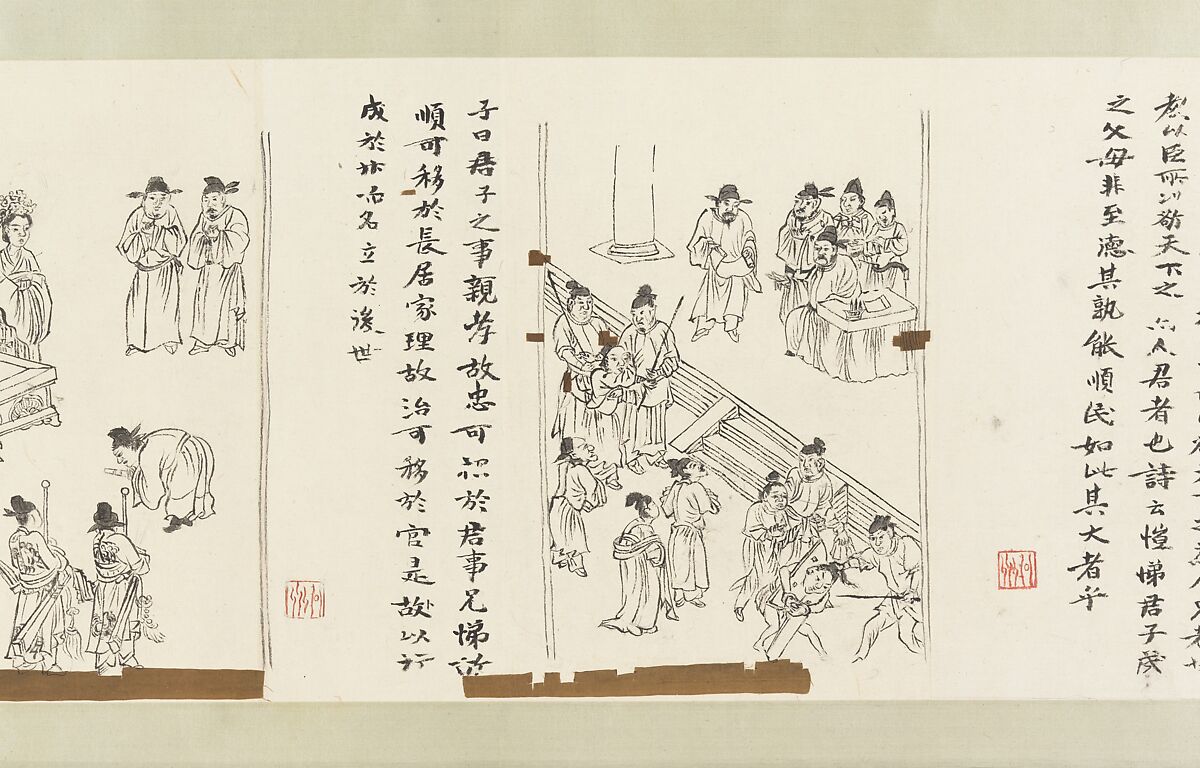 教以臣所以敬天下之人君者也詩云愷悌君子
之父母非至德其孰能順民如此其大者乎
子曰君子之事親孝故忠可移於君事兄悌故
順可移於長居家理故治可移於官是故以行
成於內而名立於後世